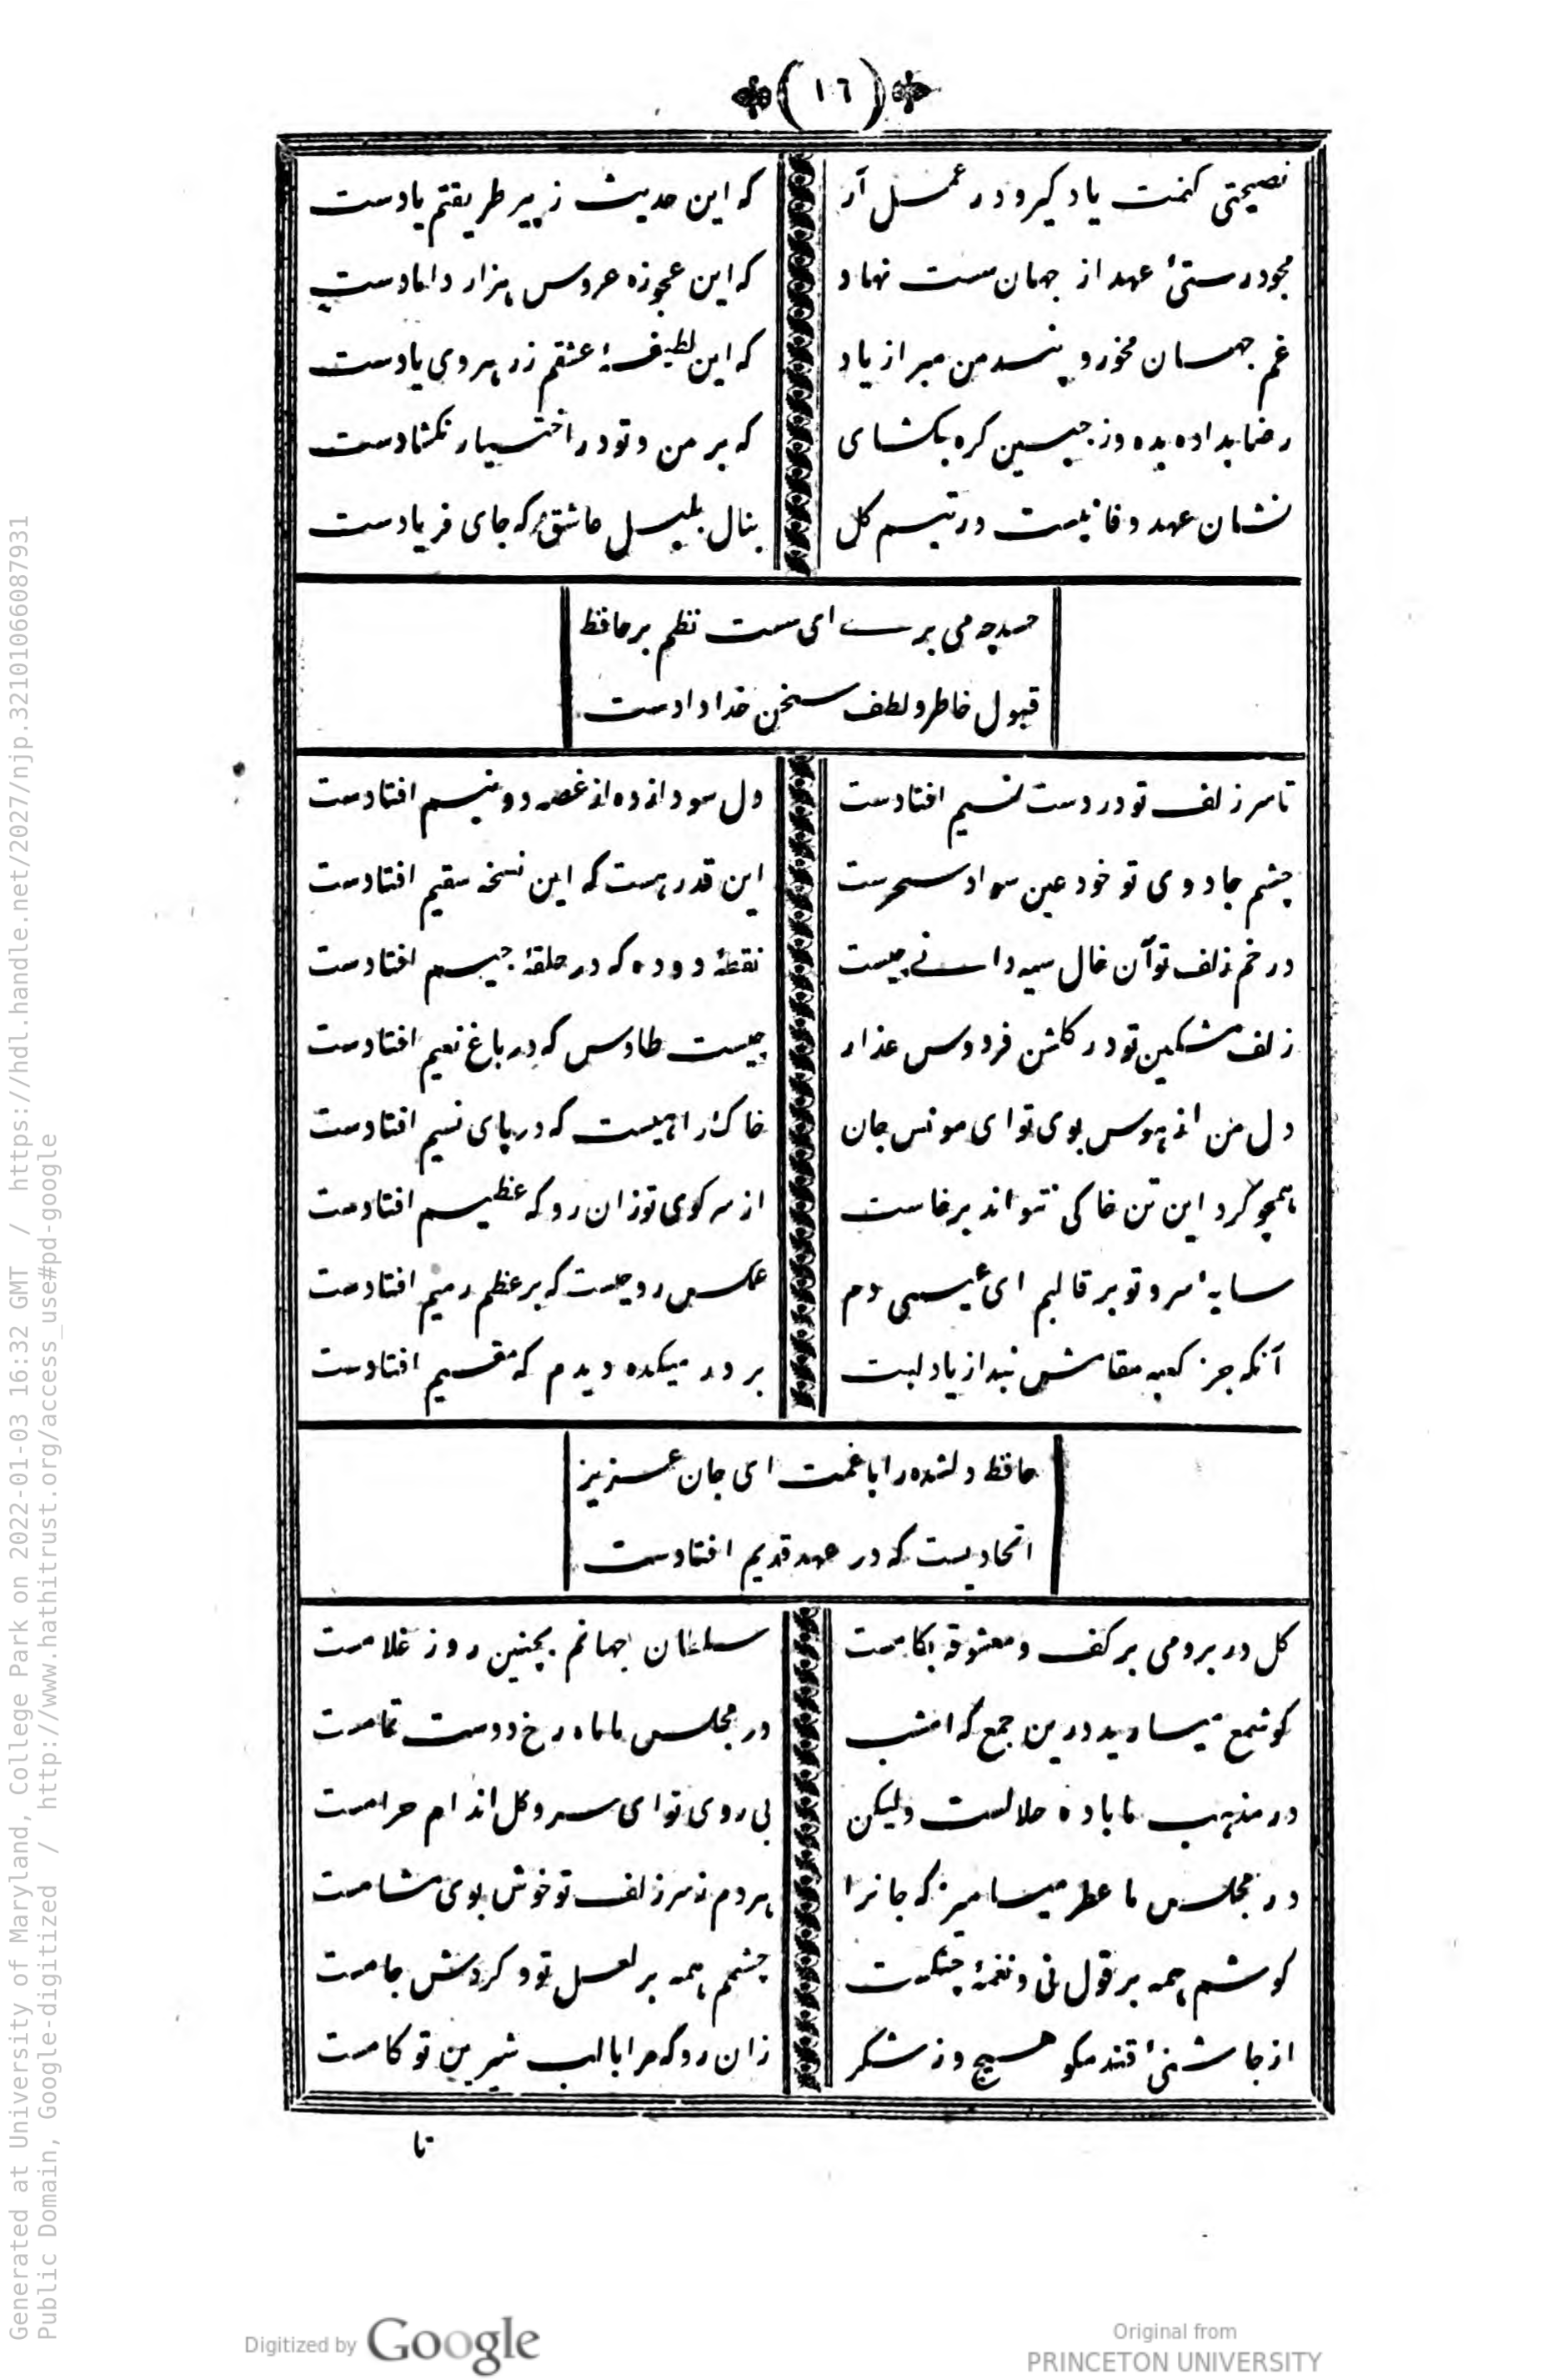 (١٦)
نصیحتی کنمت یاد کیر و در عمل آر
که این حدیث ز پیر طریقتم یادست
مجو درستئ عهد از جهان سست نهاد
که این عجوزه عروس هزار دامادست
غم جهان مخور و پند من مبر از یاد
که این لطیفهٔ عشقم ز رهروی یادست
رضا بداده بده وز جبین کره بکشای
که بر من و تو در اختیار نکشادست
نشان عهد و فا نیست در تبسم کل
بنال بلبل عاشق که جای فریادست
حسد چه می بری ای سست نظم بر حافظ
قبول خاطر و لطف سخن خدا دادست
تا سر زلف تو در دست نسیم افتادست
دل سودا زده از غصه دو نیم افتادست
چشم جادوی تو خود عین سواد سحرست
این قدر هست که این نسخه سقیم افتادست
در خم زلف تو آن خال سیه دانے چیست
نقطهٔ دوده که در حلقهٔ جیم افتادست
زلف مشکین تو در کلشن فردوس عذار
چیست طاوس که در باغ نعیم افتادست
دل من از هوس بوی تو ای مونس جان
خاک راهیست که در پای نسیم افتادست
همچو کرد این تن خاکی نتواند برخاست
از سر کوی تو زان رو که عظیم افتادست
سایهٔ سرو تو بر قالبم ای عیسی دم
عکس روحیست که بر عظم رمیم افتادست
آنکه جز کعبه مقامش نبد از یاد لبت
بر در میکده دیدم که مقیم افتادست
حافظ دلشده را با غمت ای جان عزیز
اتحادیست که در عهد قدیم افتادست
کل در بر و می بر کف و معشوقه بکامست
سلطان جهانم بچنین روز غلامست
کو شمع میارید درین جمع که امشب
در مجلس ما ماه رخ دوست تمامست
در مذهب ما باده حلالست ولیکن
بی روی تو ای سرو کل اندام حرامست
در مجلس ما عطر میامیز که جانرا
هر دم ز سر زلف تو خوش بوی مشامست
کوشم همه بر قول نی و نغمهٔ چنکست
چشمم همه بر لعل تو و کردش جامست
از چاشنئ قند مکو هیچ وز شکر
زان رو که مرا با لب شیرین تو کامست
تا
Generated at University of Maryland, College Park on 2022-01-03 16:32 GMT / https://hdl.handle.net/2027/njp.32101066087931
Public Domain, Google-digitized / http://www.hathitrust.org/access_use#pd-google
Digitized by Google
Original from
PRINCETON UNIVERSITY